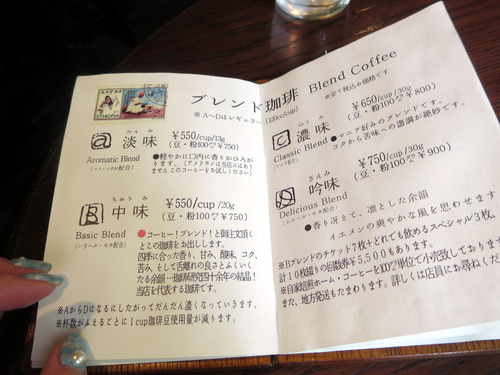 ETHIOPIA
ブレンド珈琲 Blend Coffee
(120cc/cup)
※全て税込み価格です
※A〜Dはレギュラー
a
たんみ
淡味
¥550/cup/13g
(豆・粉100g ¥750)
Aromatic Blend
●軽やかに口内に香りがひろが
ります。(アメリカンは当店にはあり
ませんこのコーヒーをお試しください)
B
ちゅうみ
中味
¥550/cup /20g
(豆・粉100g ¥750)
Basic Blend
●コーヒー!ブレンド!と御注文頂く
とこの珈琲をお出しします。
四季に合った香り、甘み、酸味、コク、
苦み、そして舌離れの良さとふくいく
たる余韻…珈琲研究四十余年の結晶!
当店を代表する珈琲です。
※AからDになるにしたがってだんだん濃くなっていきます。
※杯数がふえるごとに1cup珈琲豆使用量が減ります。
C
のうみ
濃味
¥650/cup/30g
(豆・粉100g ¥800)
Classic Blend
●マニア好みのブレンドです。
コクから苦味への諧調が絶妙です。
ぎんみ
吟味
¥750/cup/30g
(豆・粉100g ¥900)
Delicious Blend
●香り冴えて、凛とした余韻
イエメンの爽やかな風を思わせます
※Bブレンドのチケット7枚とどれでも飲めるスペシャル3枚、
計10枚綴りの回数券¥5,500もあります。
※自家焙煎ホーム・コーヒーを100g単位で小売致しており
また、地方発送もたまわります。詳しくは店員にお尋ねくだ